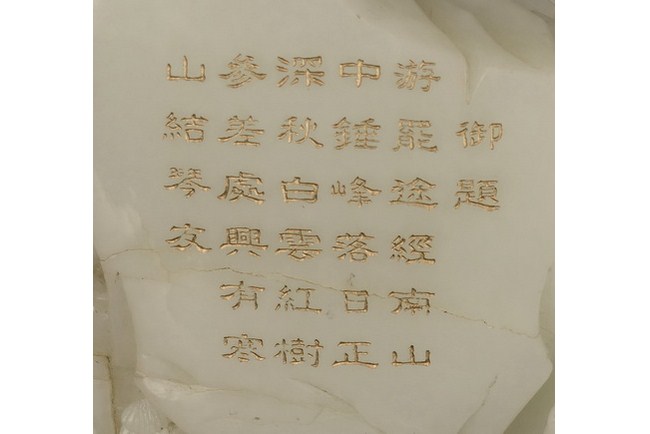 御題
游罷途經南山
中錘峰落日正
深秋白雲紅樹
參差處興有寒
山結琴友